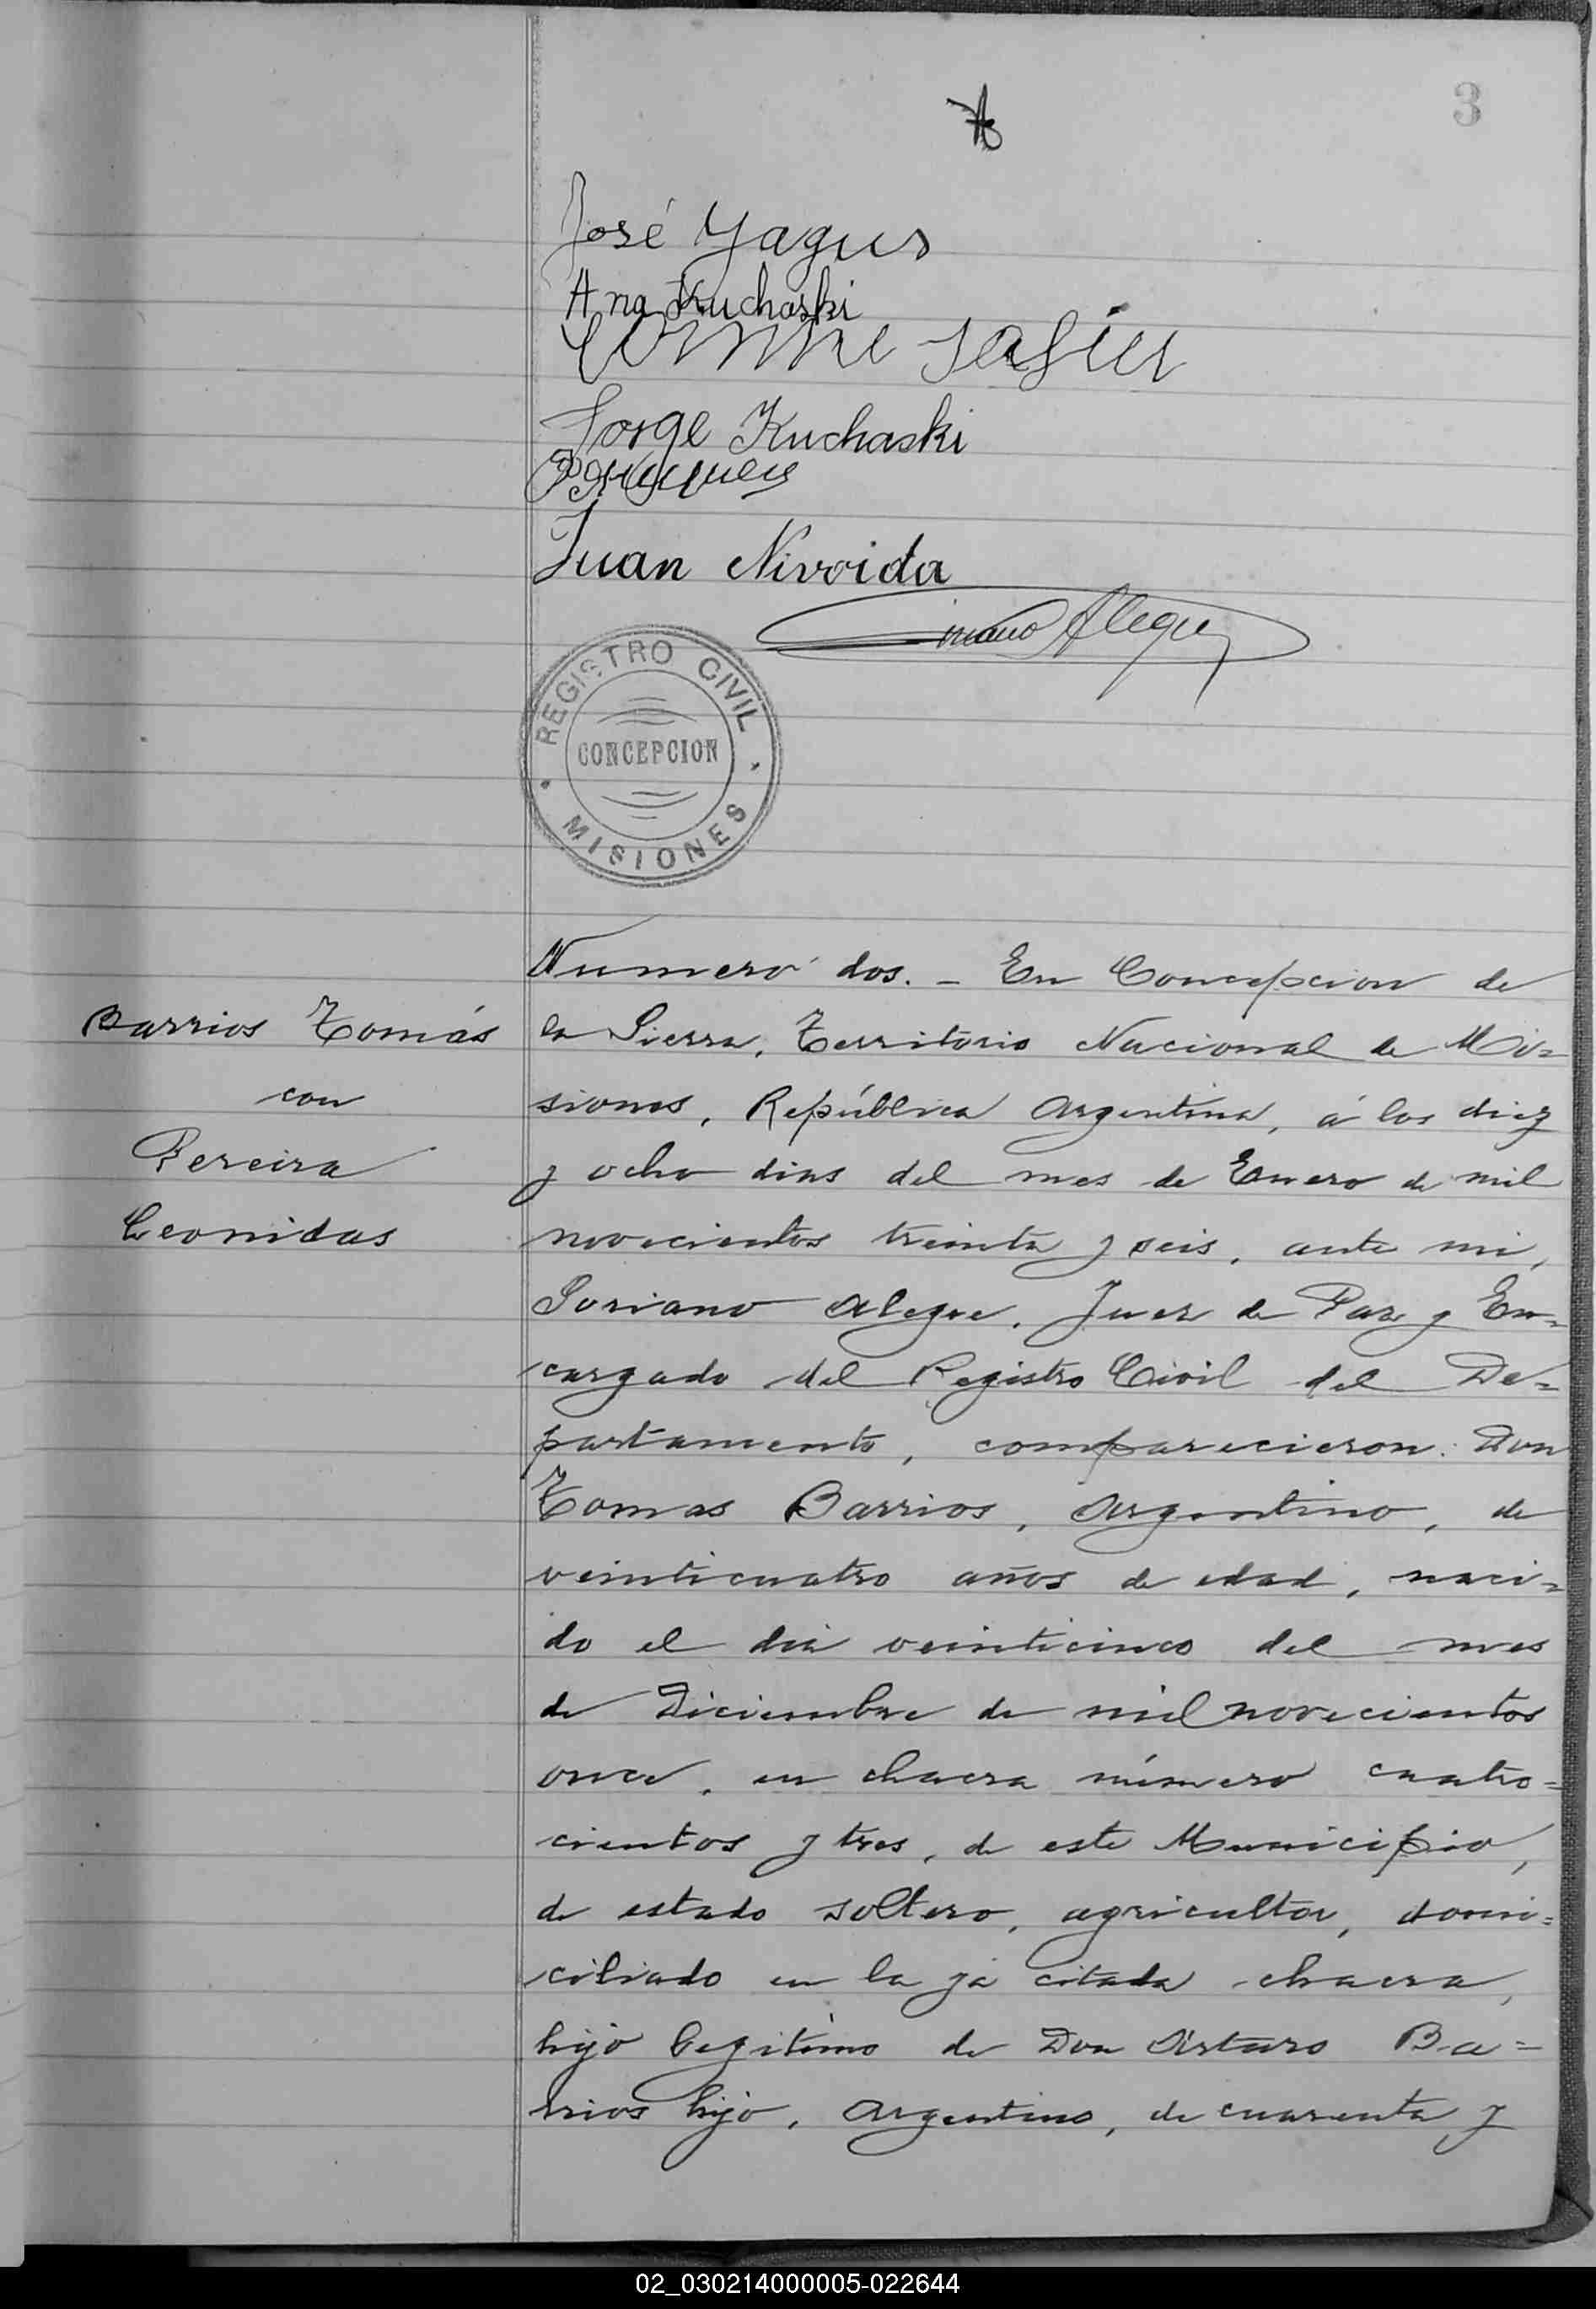 3
José Yagus
Ana Kuchaski
Jorge Kuchaski
Juan Nivoida
Alegre
REGISTRO CIVIL
CONCEPCION
MISIONES
Barrios Tomás
con
Pereira
Leonidas
Numero dos. - En Concepcion de
la Sierra, Territorio Nacional de Mi=
siones, República Argentina, á los diez
y ocho dias del mes de Enero de mil
novecientos treinta y seis, ante mi,
Soriano Alegre, Juez de Paz y En=
cargado del Registro Civil del De=
partamento, comparecieron: Don
Tomas Barrios, Argentino, de
veinticuatro años de edad, naci=
do el dia veinticinco del mes
de Diciembre de mil novecientos
once, en chacra número cuatro=
cientos y tres, de este Municipio,
de estado soltero, agricultor, domi=
ciliado en la ya citada chacra,
hijo legitimo de Don Arturo Ba=
rrios hijo, Argentino, de cuarenta y
02_030214000005-022644